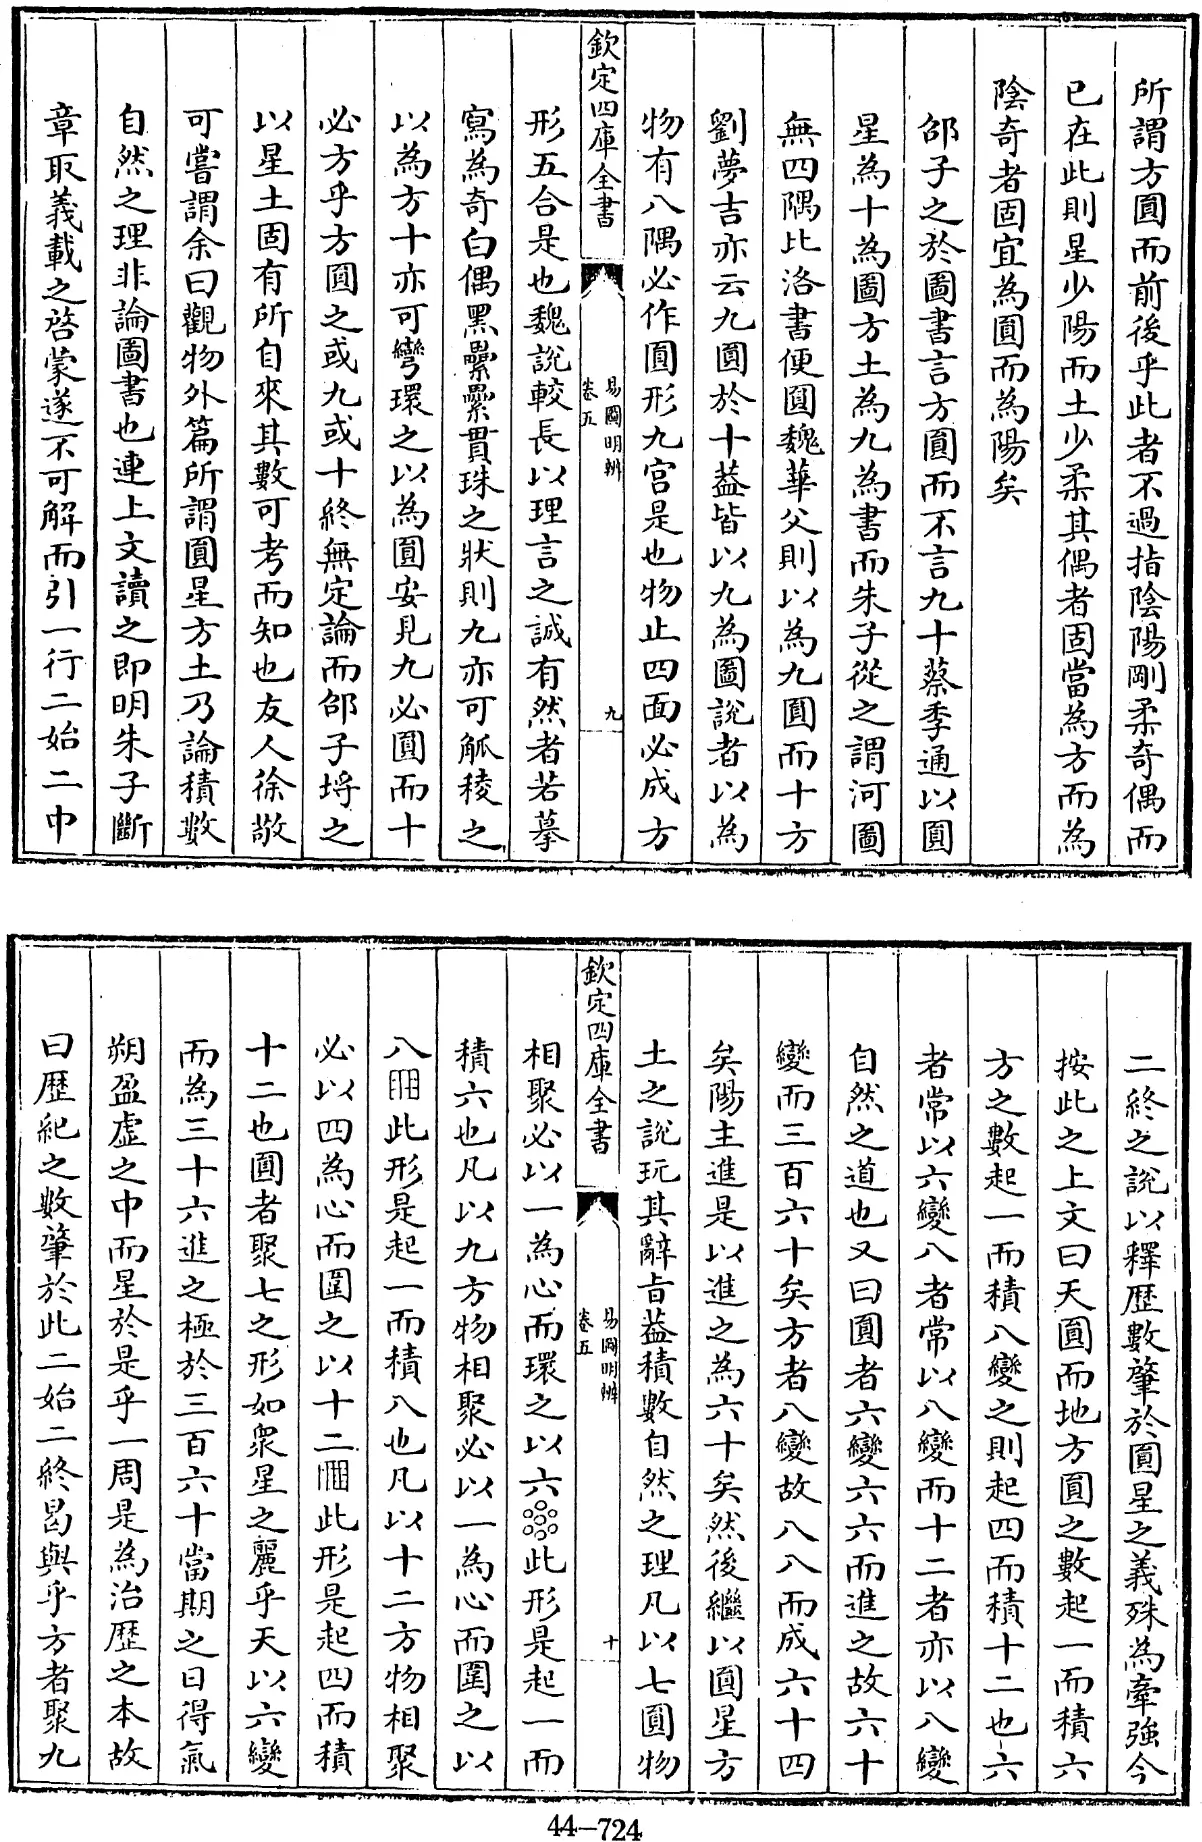 所謂方圓而前後乎此者不過指陰陽剛柔奇偶而
已在此則星少陽而土少柔其偶者固當為方而為
陰奇者固宜為圓而為陽矣
邵子之於圖書言方圓而不言九十蔡季通以圓
星為十為圖方土為九為書而朱子從之謂河圖
無四隅比洛書便圓魏華父則以為九圓而十方
劉夢吉亦云九圓於十葢皆以九為圖說者以為
物有八隅必作圓形九宫是也物止四面必成方
欽定四庫全書
易圖明辨
卷五
九
形五合是也魏說較長以理言之誠有然者若摹
寫為奇白偶黑纍纍貫珠之狀則九亦可觚稜之
以為方十亦可彎環之以為圓安見九必圓而十
必方乎方圓之或九或十終無定論而邵子埓之
以星土固有所自來其數可考而知也友人徐敬
可嘗謂余曰觀物外篇所謂圓星方土乃論積數
自然之理非論圖書也連上文讀之即明朱子斷
章取義載之啓蒙遂不可解而引一行二始二中
二終之說以釋歴數肇於圓星之義殊為牽強今
按此之上文曰天圓而地方圓之數起一而積六
方之數起一而積八變之則起四而積十二也六
者常以六變八者常以八變而十二者亦以八變
自然之道也又曰圓者六變六六而進之故六十
變而三百六十矣方者八變故八八而成六十四
矣陽主進是以進之為六十矣然後繼以圓星方
土之說玩其辭旨葢積數自然之理凡以七圓物
欽定四庫全書
易圖明辨
卷五
十
相聚必以一為心而環之以六此形是起一而
積六也凡以九方物相聚必以一為心而圍之以
八此形是起一而積八也凡以十二方物相聚
必以四為心而圍之以十二此形是起四而積
十二也圓者聚七之形如衆星之麗乎天以六變
而為三十六進之極於三百六十當期之日得氣
朔盈虛之中而星於是乎一周是為治歴之本故
曰歴紀之數肇於此二始二終曷與乎方者聚九
44-724